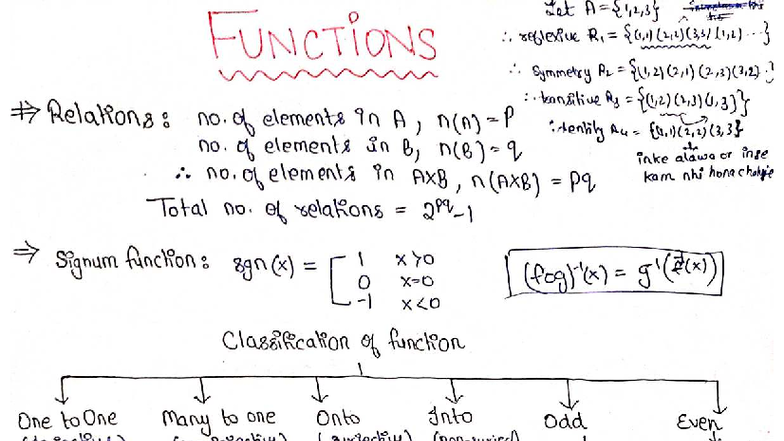 FUNCTIONS
Let A = {1,2,3}
∴ reflexive R₁ = {(1,1)(2,2)(3,3)(1,2)...}
∴ Symmetry R₂ = {(1,2)(2,1)(2,3)(3,2)..}
∴ transitive R₃ = {(1,2)(2,3)(1,3)}
∴ identity R₄ = {(1,1)(2,2)(3,3)}
inke alawa or inse
kam nhi hona chahiye
⇒ Relations: no. of elements in A, n(A) = P
no. of elements in B, n(B) = q
∴ no. of elements in A×B, n(A×B) = Pq
Total no. of relations = 2^pq - 1
⇒ Signum function: sgn(x) = [ 1 x>0
0 x=0
-1 x<0
(fog)⁻¹(x) = g⁻¹(f⁻¹(x))
Classification of function
One to One Many to one Onto Into Odd Even
(surjective)